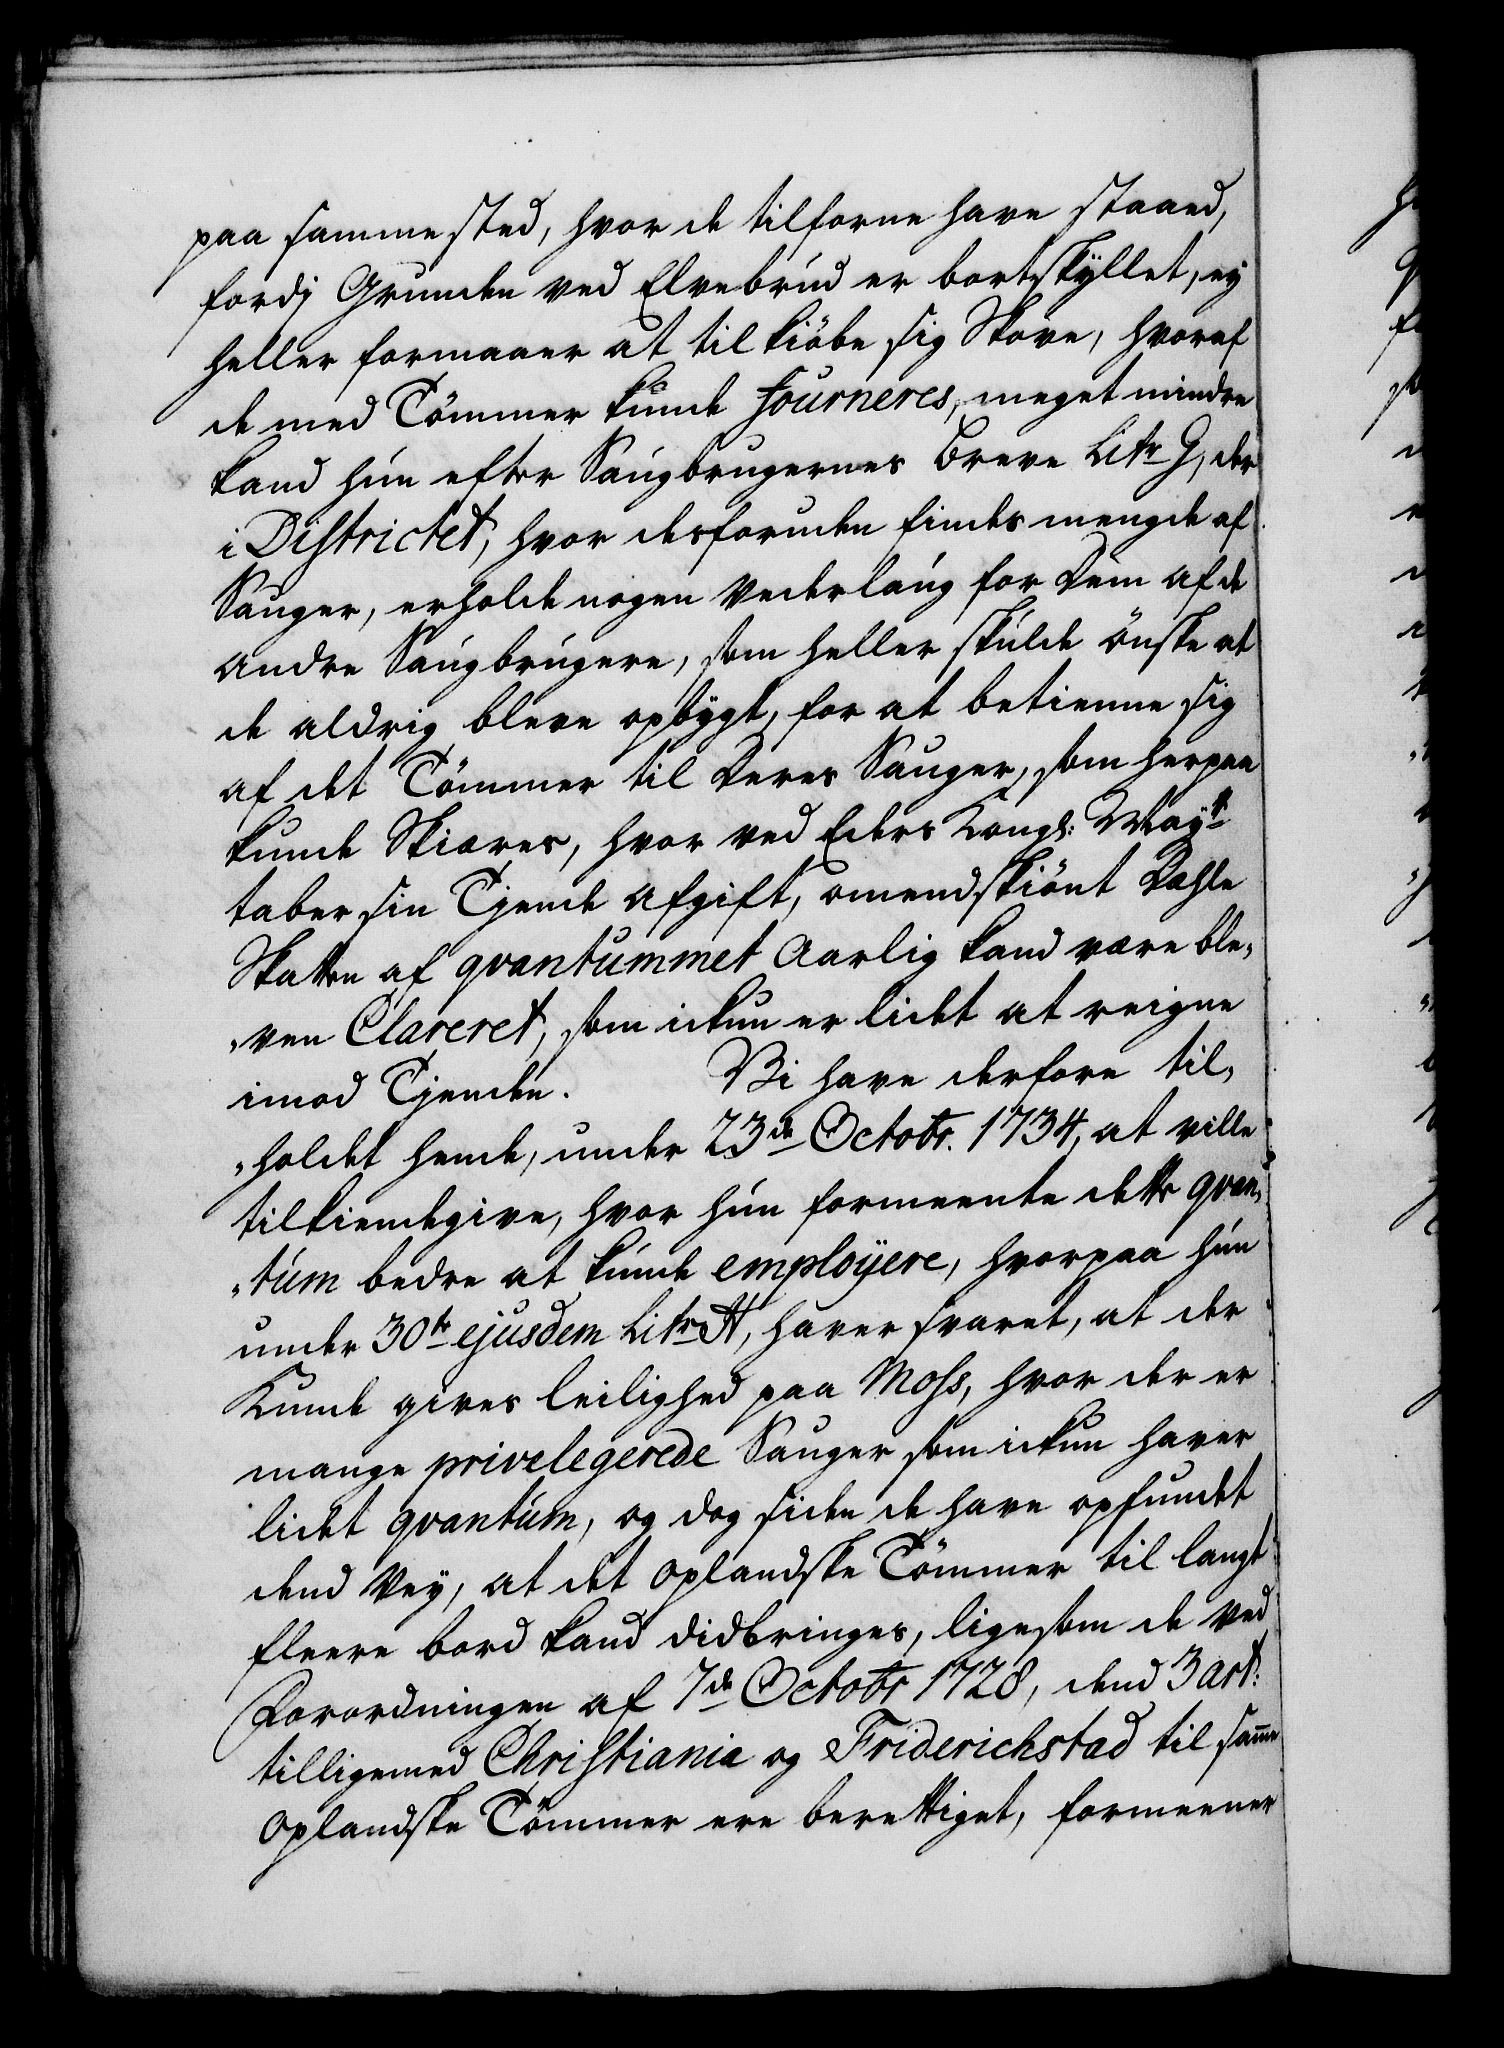 paa samme sted, hvor de tilforne have staaed,
fordj Grunden ved Elvebrud er bortskyllet, ey
heller formaaer at tilkiöbe sig Skove, hvoraf
de med Tömmer kunde fourneres, meget mindre
kand hun efter Saugbrugernes Breve Litr G, der
i Districtet, hvor desforuden findes mengde af
Sauger, erholde nogen Vederlaug for dem af de
andre Saugbrugere, som heller skulde önske at
de aldrig bleve opbygt, for at betienne sig
af det Tömmer til deres Sauger, som herpaa
kunde Skiæres, hvor ved Eders Kongl: Maytt
taber sin Tjende afgift, omendskiönt Dahle
Skatten af qvantummet Aarlig kand være ble„
„ven Clareret, som ickun er lidet at reigne
imod Tjenden. Vi have derfore til„
„holdet hende, under 23de Octobr. 1734, at ville
tilkiendegive, hvor hun formeente dette qvan„
„tum bedre at kunde employere, hvorpaa hun
under 30te ejusdem Litr H, haver svaret, at der
Kunde gives leilighed paa Moss, hvor der er
mange privelegerede Sauger som ickun haver
lidet qvantum, og dog siden de have opfundet
dend Vey, at det oplandske Tömmer til langt
fleere bord kand didbringes, ligesom de ved
Forordningen af 7de Octobr 1728, dend 3 art:
tilligemed Christiania og Friderichstad til samme
oplandske Tömmer ere berettiget, formeener